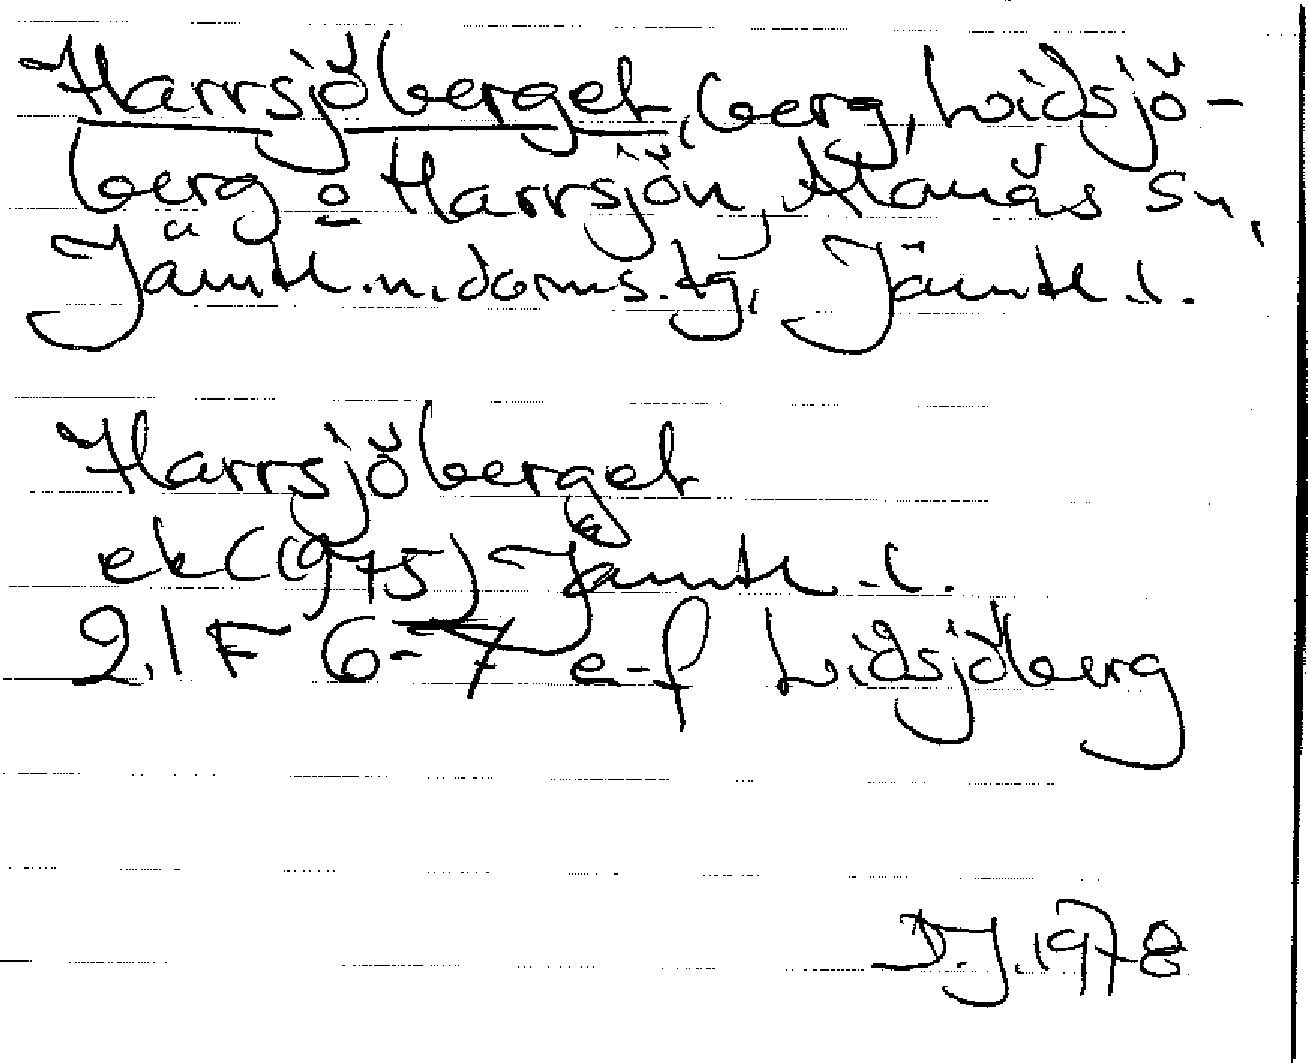 Harrsjöberget, berg, Lidsjö-
berg o Harrsjön, Alanäs sn,
Jämtl.n.doms.tg, Jämtl.l.
Harrsjöberget
ek (1975) Jämtl.l.
21F 6-7 e-f Lidsjöberg
D.J. 1978